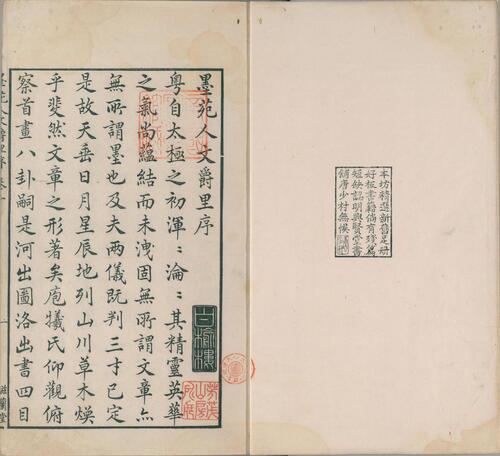 本坊精選新舊足冊
好板書籍倘有殘篇
短缺認明興賢堂書
鋪唐少村無悮
墨苑人文爵里序
粵自太極之初渾〻淪〻其精靈英華
之氣尚蘊結而未洩固無所謂文章亦
無所謂墨也及夫兩儀既判三才已定
是故天垂日月星辰地列山川草木煥
乎斐然文章之形著矣庖犧氏仰觀俯
察首畫八卦嗣是河出圖洛出書四目
墨苑人文爵里序
一
滋蘭堂